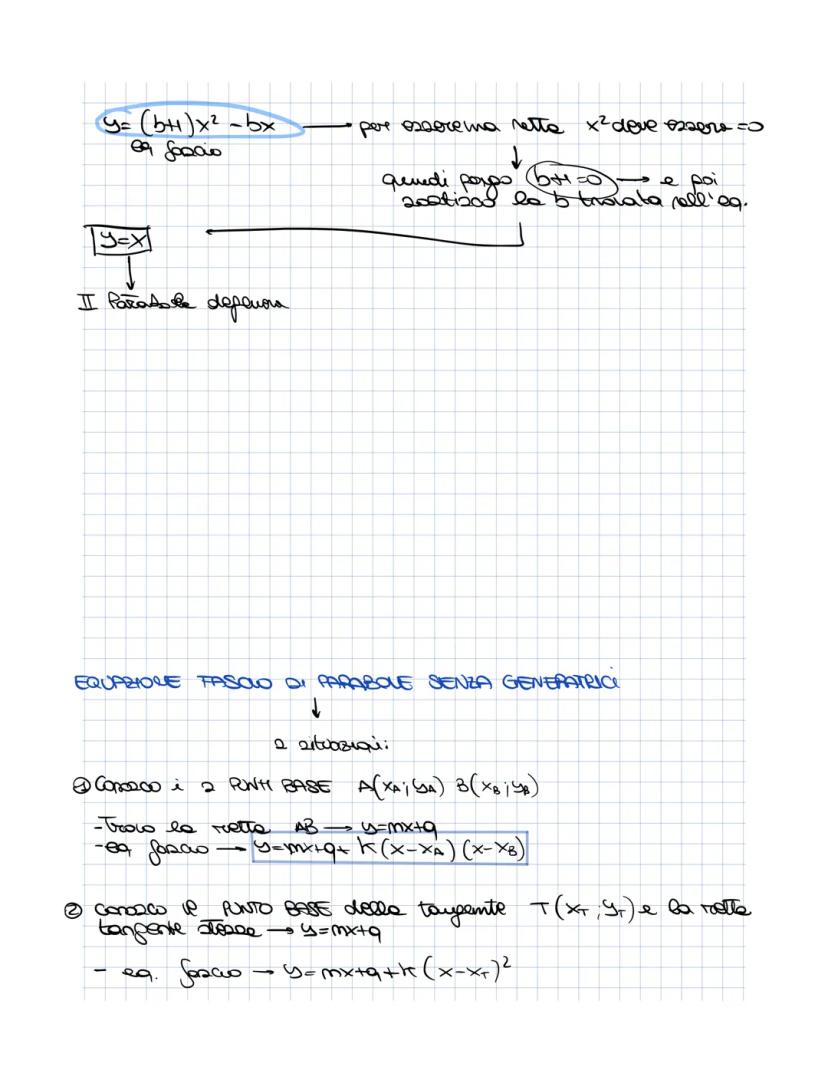 y= (b+1)x² - bx → per essere una retta x² deve essere =0
eq fascio
quindi pongo b+1=0 → e poi
sostisco la b trovata nell'eq.
y=x
II Parabola degenere
EQUAZIONE FASCIO DI PARABOLE SENZA GENERATRICI
2 situazioni:
① Conosco i 2 PUNTI BASE A(xA; yA) B(xB; yB)
-Trovo la retta AB → y=mx+q
-eq fascio → y=mx+q+ K(x-xA) (x-xB)
② conosco il PUNTO BASE della tangente T(xT; yT) e la retta
tangente stessa → y=mx+q
- eq. fascio → y=mx+q+k(x-xT)²